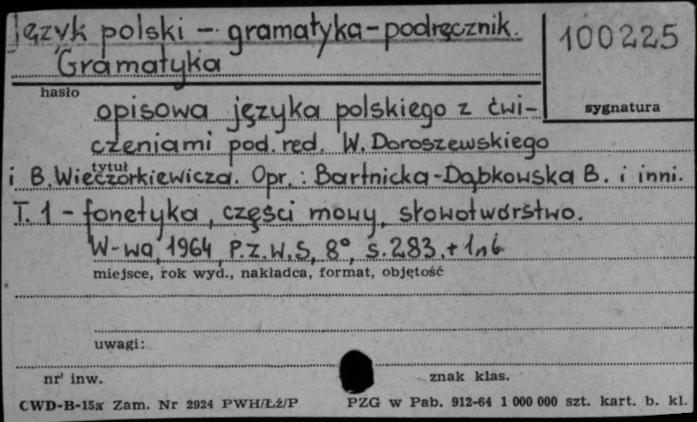 Język polski - gramatyka - podręcznik.
100225
Gramatyka
hasło
sygnatura
opisowa języka polskiego z ćwi-
czeniami pod. red. W. Doroszewskiego
tytuł
i B. Wieczorkiewicza. Opr. : Bartnicka-Dąbkowska B. i inni.
T. 1 - fonetyka, części mowy, słowotwórstwo.
W-wa, 1964, P.Z.W.S, 8°, s. 283. + 1 n6
miejsce, rok wyd., nakładca, format, objętość
uwagi:
nr inw.
znak klas.
CWD-B-15a Zam. Nr 2924 PWH/Łź/P
PZG w Pab. 912-64 1 000 000 szt. kart. b. kl.